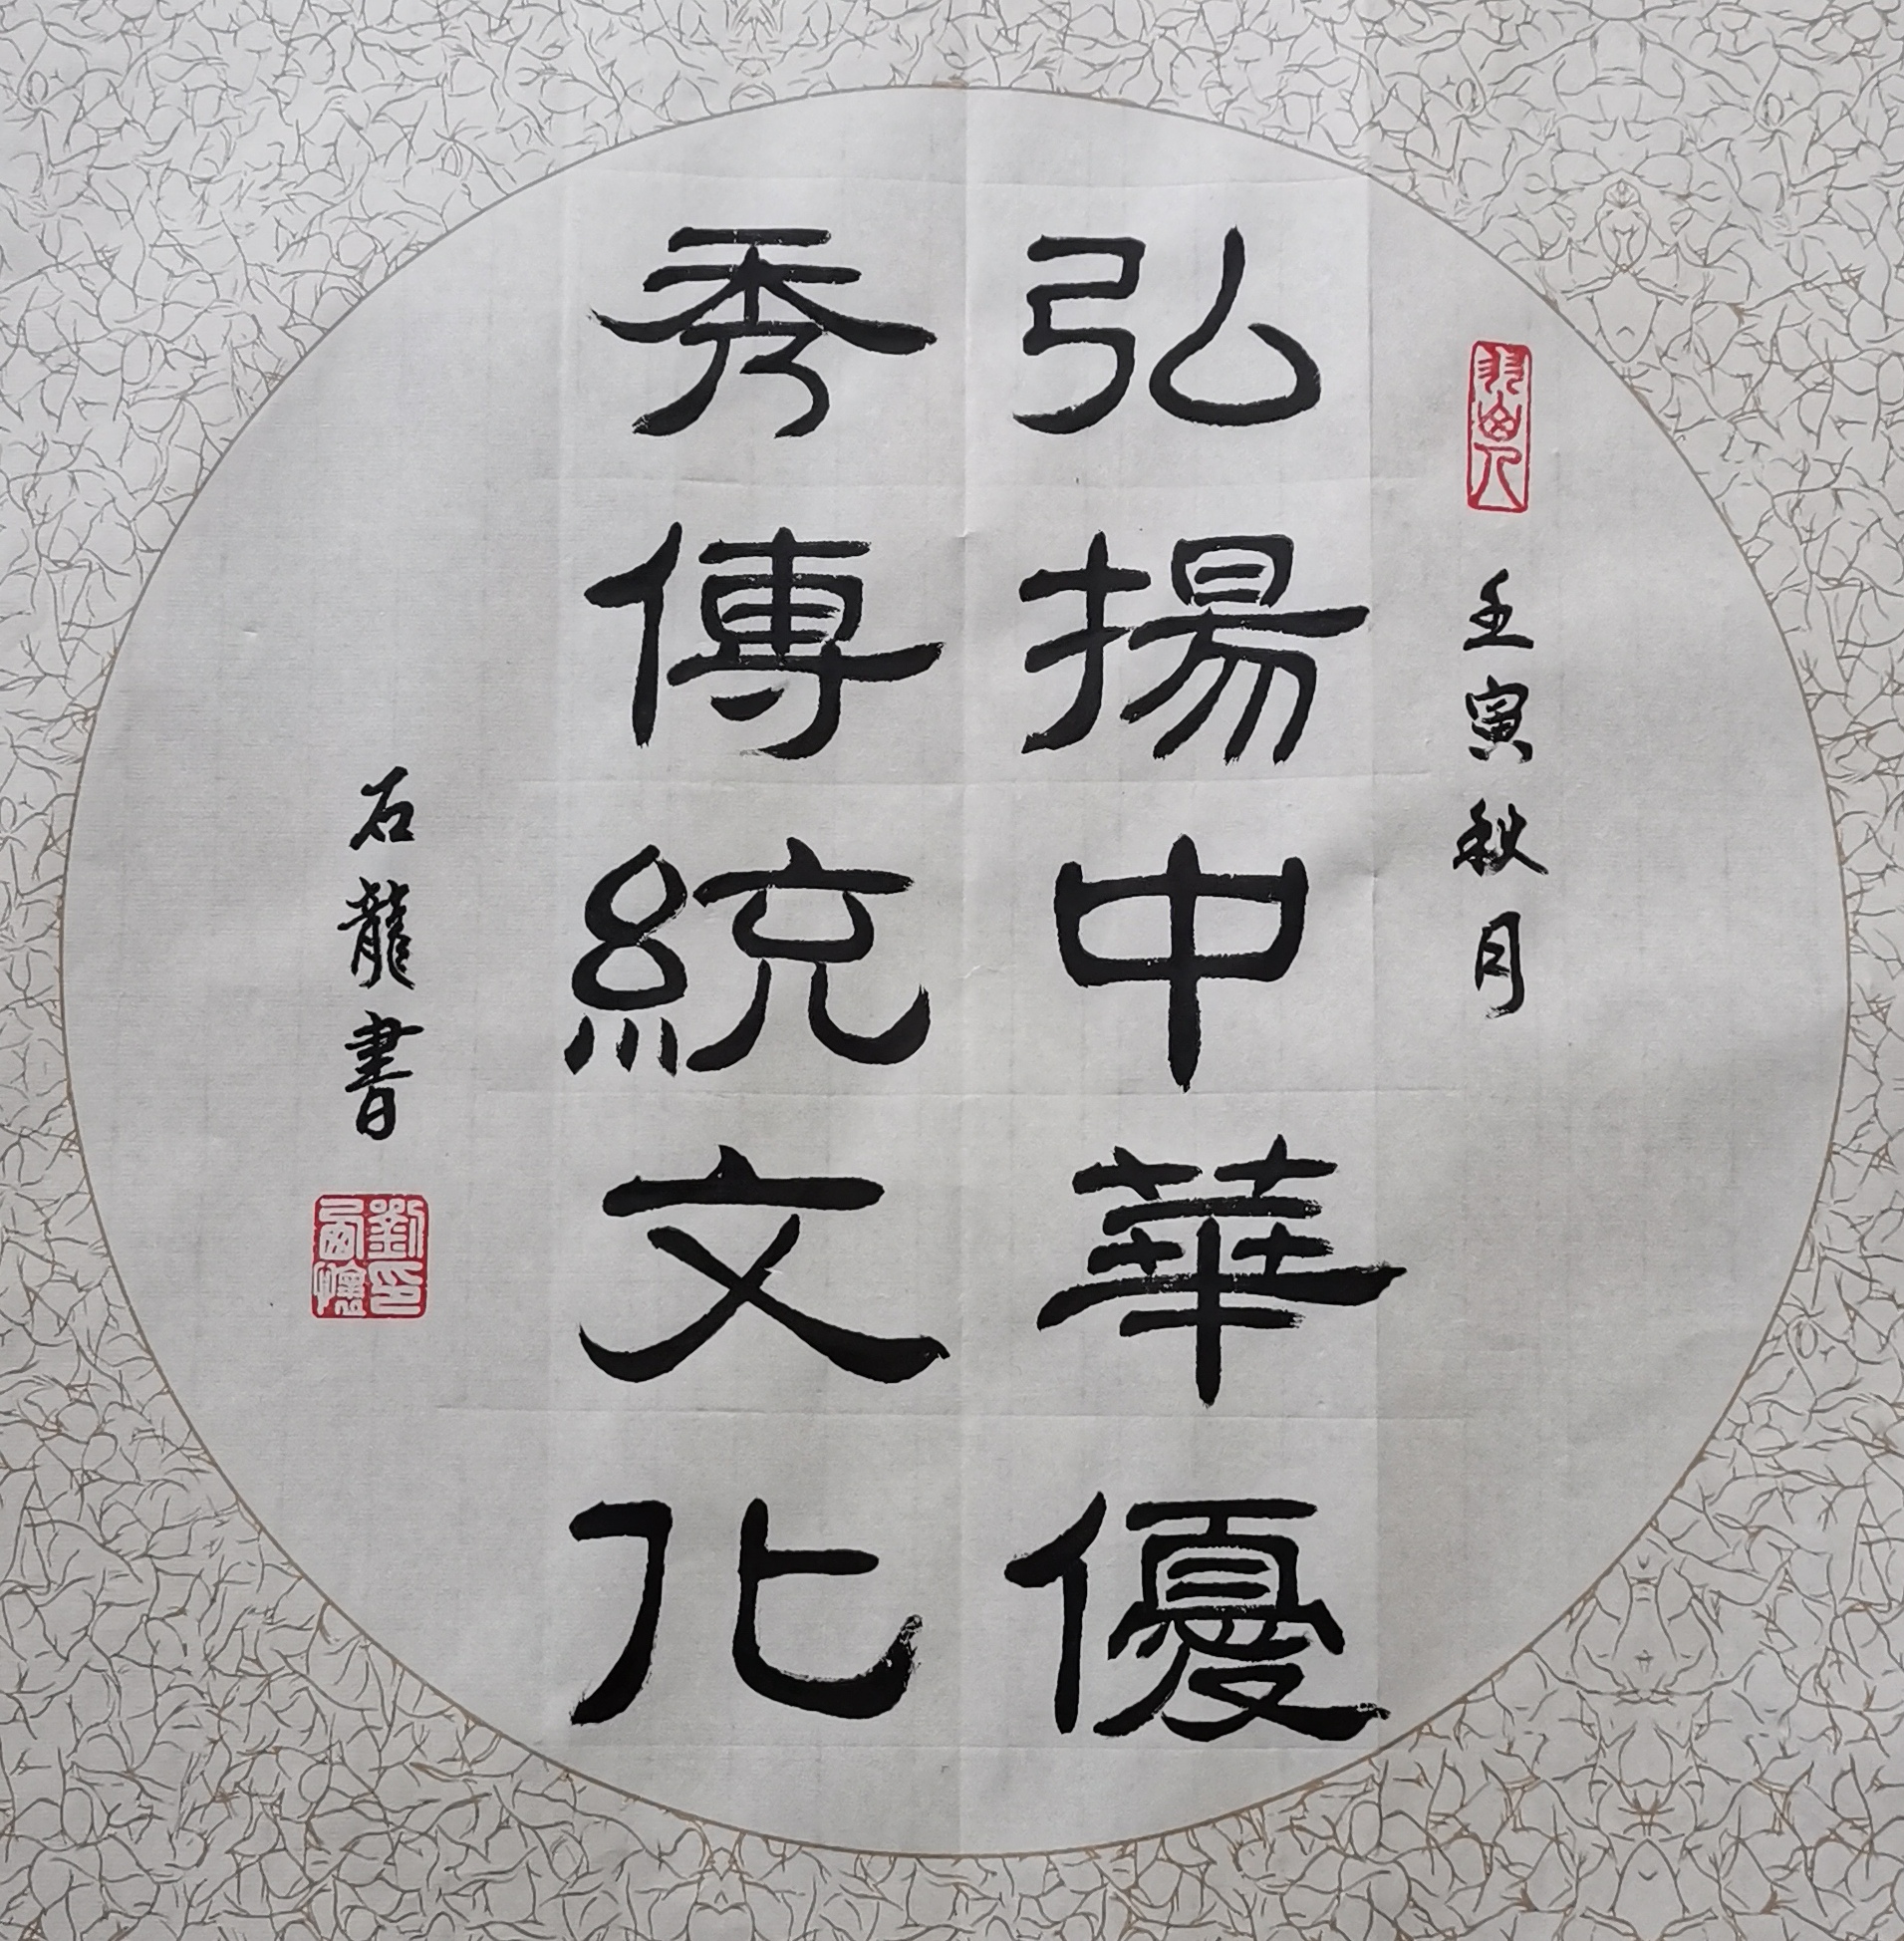 壬寅秋月
弘揚中華優
秀傳統文化
石龍書